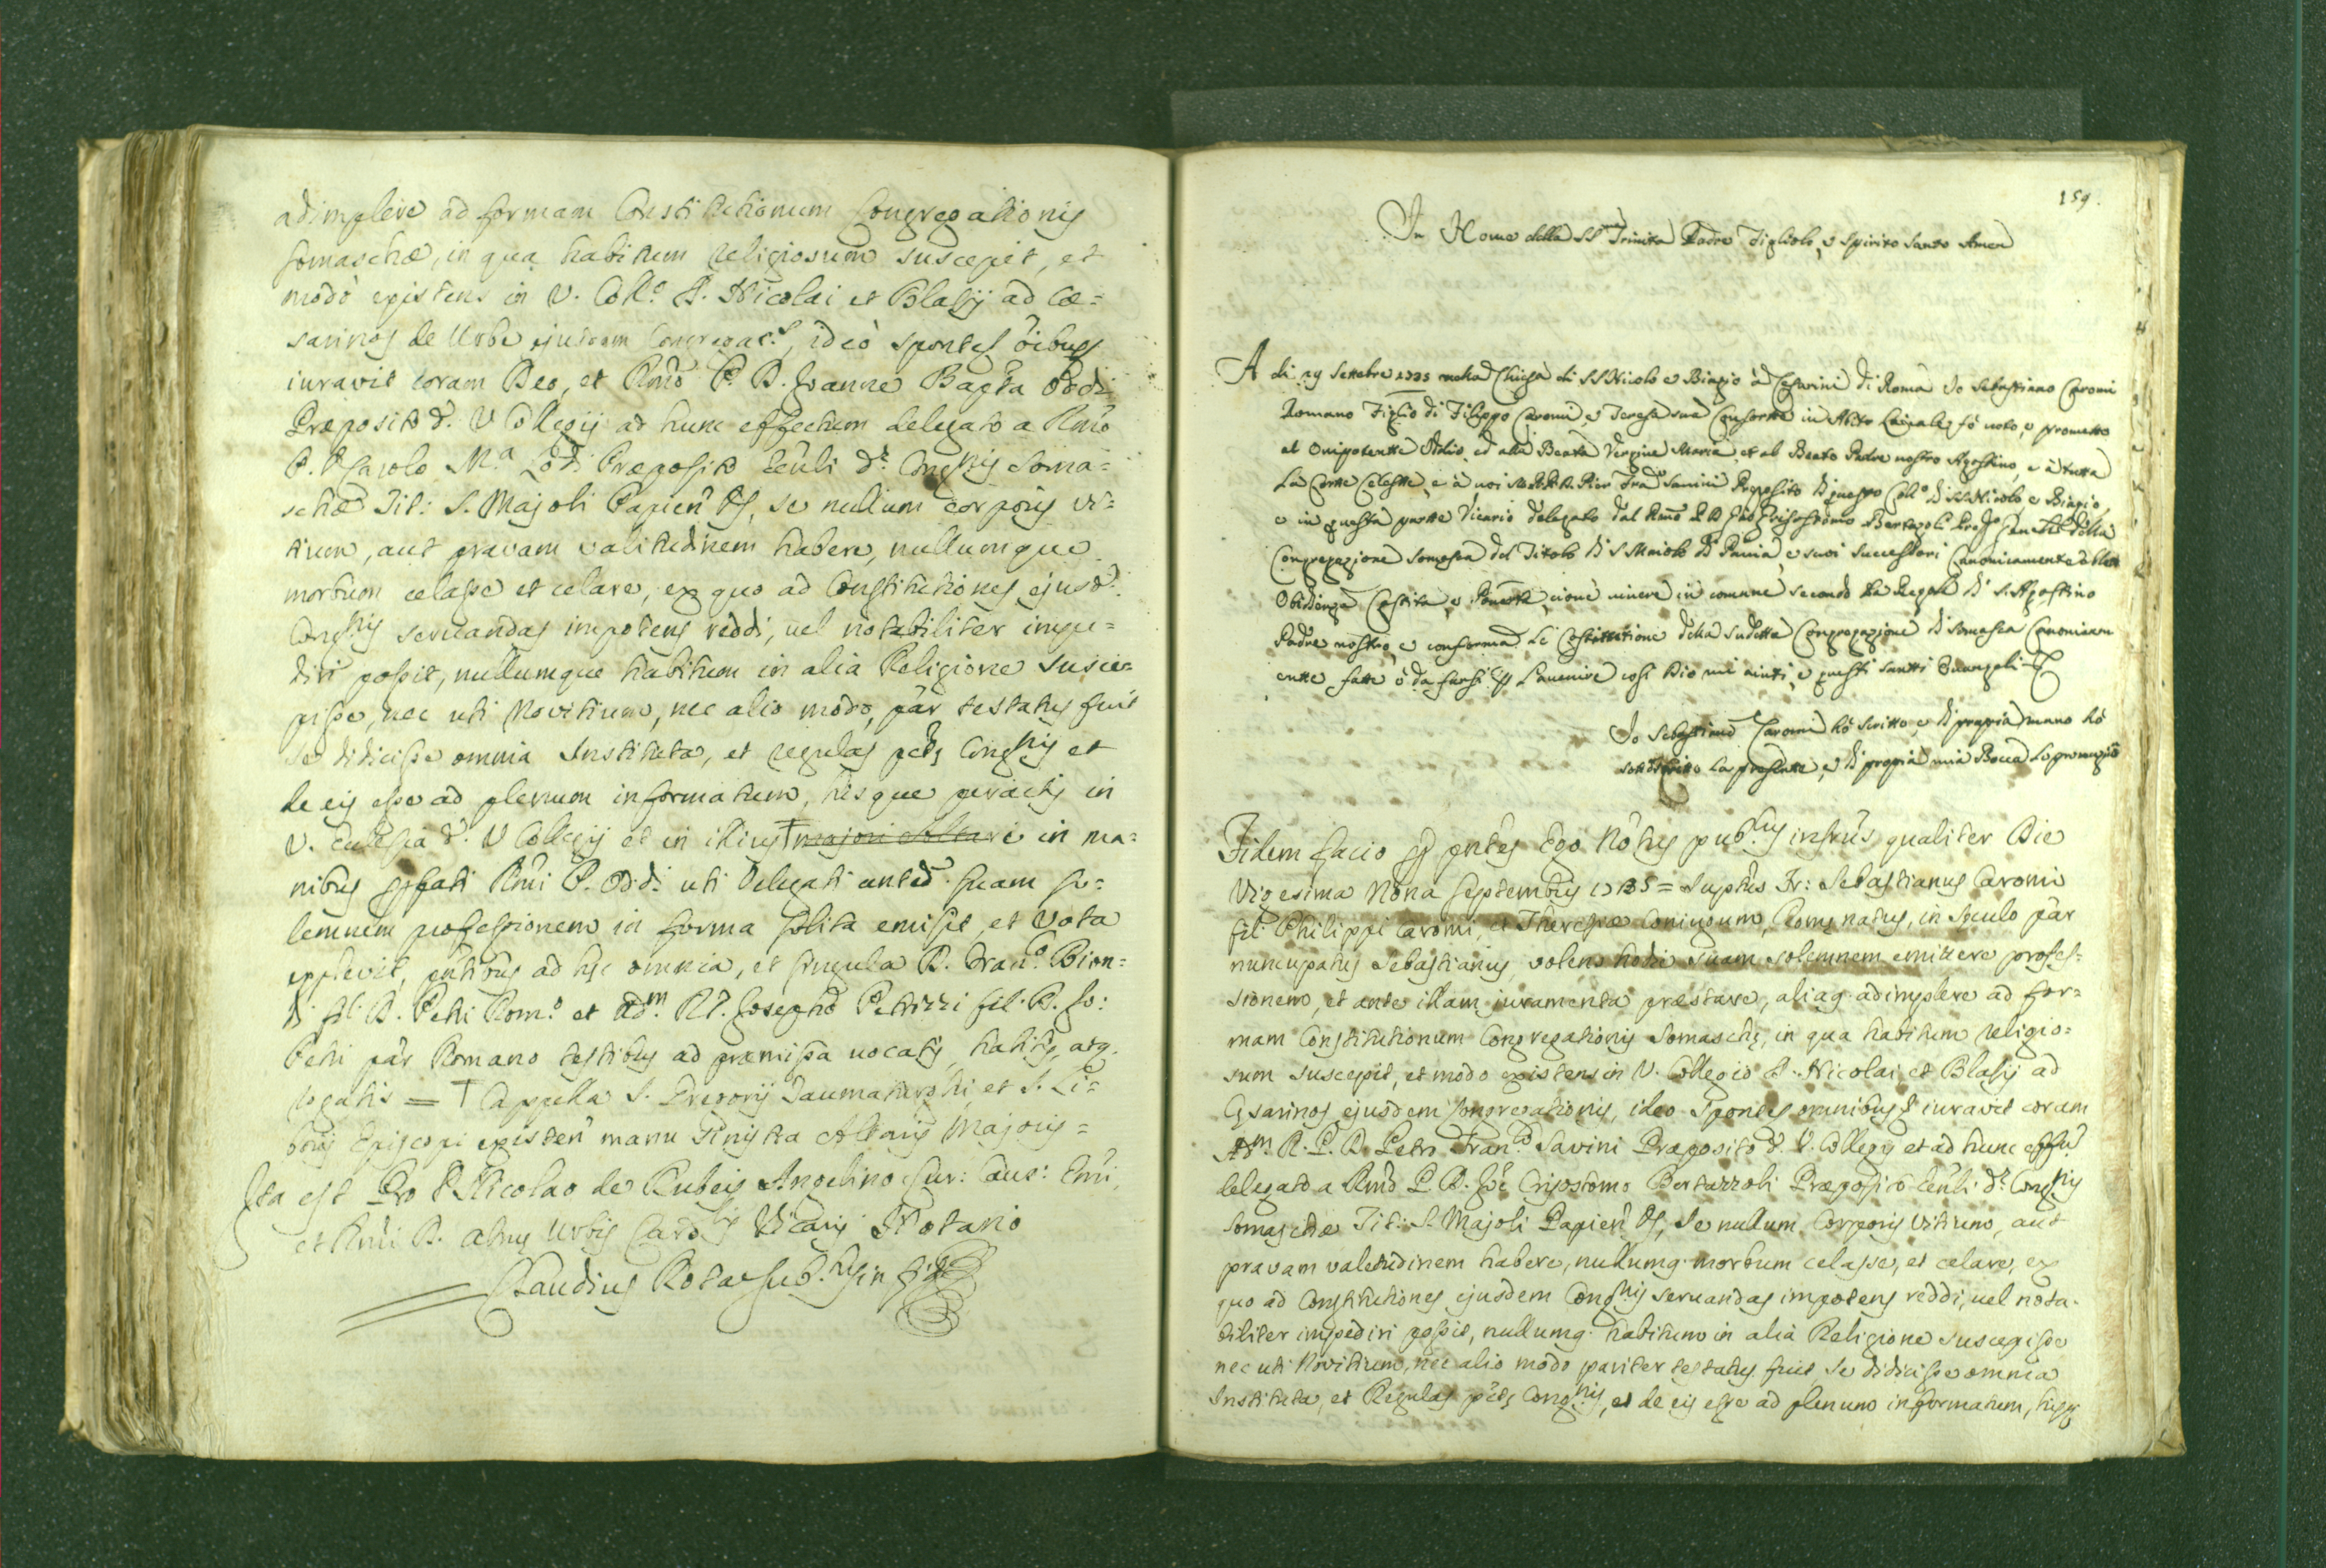 adimplere ad formam Constitutionum Congregationis
Somaschæ, in qua habitum religiosum suscepit, et
modò existens in V. Coll.º S. Nicolai et Blasij ad Cæ=
sarinos de Urbe ejusdem Congregac.s, ideò spontes õibus
iuravit coram Deo, et Rmõ P. D. Joanne Bapta Oddi
Præposito d. V Collegij ad hunc effectum delegato a Rmõ
P. D. Carolo M.a Lodi Præposito Genli d.æ Congnis Soma=
schæ Tit: S. Majoli Papien, se nullum corporis vi=
tium, aut pravam valitudinem habere, nullumque
morbum celasse et celare, ex quo ad Constitutiones ejusd.
Congnis servandas impotens reddi, vel notabiliter impe=
diri possit, nullumque habitum in alia Religione susce=
pisse, nec uti Novitium, nec alio modo, par testatus fuit
se didicisse omnia Instituta, et regulas Congnis et
de eis esse ad plenum informatum, hisque peractis in
V. Ecclesia d. V Collegij et in illius † majori Altari in ma=
nibus Rmi P. Oddi uti Delegati anted. suam so=
lemnem professionem in forma solita emisit, et vota
explevit, pntibus ad hæc omnia, et singula D. Fran.co Bion=
di fil. D. Petri Rom.º et adm. R.P. Josepho Petrizzi fil. D. Jo:
Petri par Romano testibus ad præmissa vocatis, habitis, atq.
rogatis = † Cappella S. Gregorij Taumaturghi, et S. Li=
borij Episcopi existen manu sinistra Altaris Majoris =
Ita est Pro D. Nicolao de Rubeis Angelino Cur: Caus: Emi,
et Rmi D. Almæ Urbis Card.lis Vicarij Notario
Claudius Rota Sub.tus in fid.
159.
In Nome della SSma Trinita Padre Figliolo, e Spirito Santo Amen
A di 29 Settebre 1735 nella Chiesa di SS Nicolo e Biagio à Cesarini di Roma Io Sebastiano Caromi
Romano Figlio di Filippo Caromi, e Teresa sua Consorte in Abito fò voto, e prometto
al Onipotente Iddio, ed alla Beata Vergine Maria, et al Beato Padre nostro Agostino, e à tutta
La Corte Celeste, e à voi D. Pier Fran.co Savini Preposito di questo Coll.º di SS. Nicolo e Biagio,
e in questa parte Vicario delegato dal Rmo P. D. Gio Grisostomo Bertazzoli Prep.o Gen.le della
Congregazione Somasca del Titolo di S Maiolo di Pavia, e suoi successori Canonicamente
Obedienza Castita, e Povertà, cioue vivere in comune secondo La Regola di S. Agostino
Padre nostro, e conforma Le Costittutione della sudetta Congregazione di Somasca Canonicam
ente fatte ò da farsi p L'avenire cosi Dio mi aiuti, e questi Santti Evangeli
Io Sebastiano Caromi hò scritto, e di propria mano hò
sottoscritto La presente, e di propria mia Bocca Lo pronuzio
Fidem facio p pntes Ego Nõtus pub.cus infrus qualiter Die
Vigesima Nona Septembris 1735 = suptus Fr: Sebastianus Caromi
fil. Philippi Caromi, et Theresiæ Coniugum, Romę natus, in sæculo par
nuncupatus Sebastianus, volens hodie suam solemnem emittere profes=
sionem, et ante illam iuramenta præstare, aliaq. adimplere ad for=
mam Constitutionum Congregationis Somaschę, in qua habitum religio=
sum suscepit, et modo existens in V. Collegio S. Nicolai et Blasij ad
Cęsarinos ejusdem Congregationis, ideo spontes omnibus iuravit coram
Adm. R. P. D. Petro Fran.co Savini Præposito d. V. Collegij et ad hunc effum
delegato a Rmõ P. D. Joe Crisostomo Bertazzoli Præposito Genli d.æ Congnis
Somaschæ Tit: S. Majoli Papien, se nullum Corporis vitium, aut
pravam valetudinem habere, nullumq. morbum celasse, et celare, ex
quo ad Constitutiones ejusdem Congnis servandas impotens reddi, vel nota-
biliter impediri possit, nullumq. habitum in alia Religione suscepisse
nec uti Novitium, nec alio modo pariter testatus fuit se didicisse omnia
Instituta, et Regulas Congnis, et de eis esse ad plenum informatum, hisq